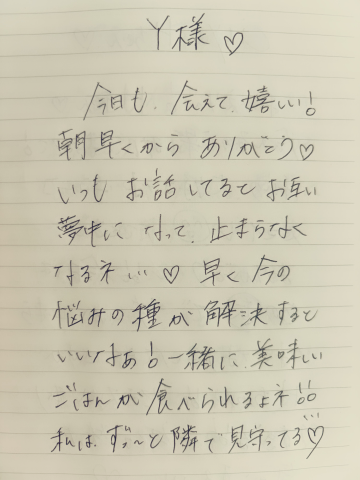 Y様♡
今日も、会えて、嬉しい!
朝早くから ありがとう♡
いつも お話ししてると お互い
夢中に なって、止まらなく
なるネ…♡ 早く 今の
悩みの種が 解決すると
いいなぁ!一緒に、美味しい
ごはんが 食べられるよネ!!
私は、ずっ〜と 隣で 見守ってる♡